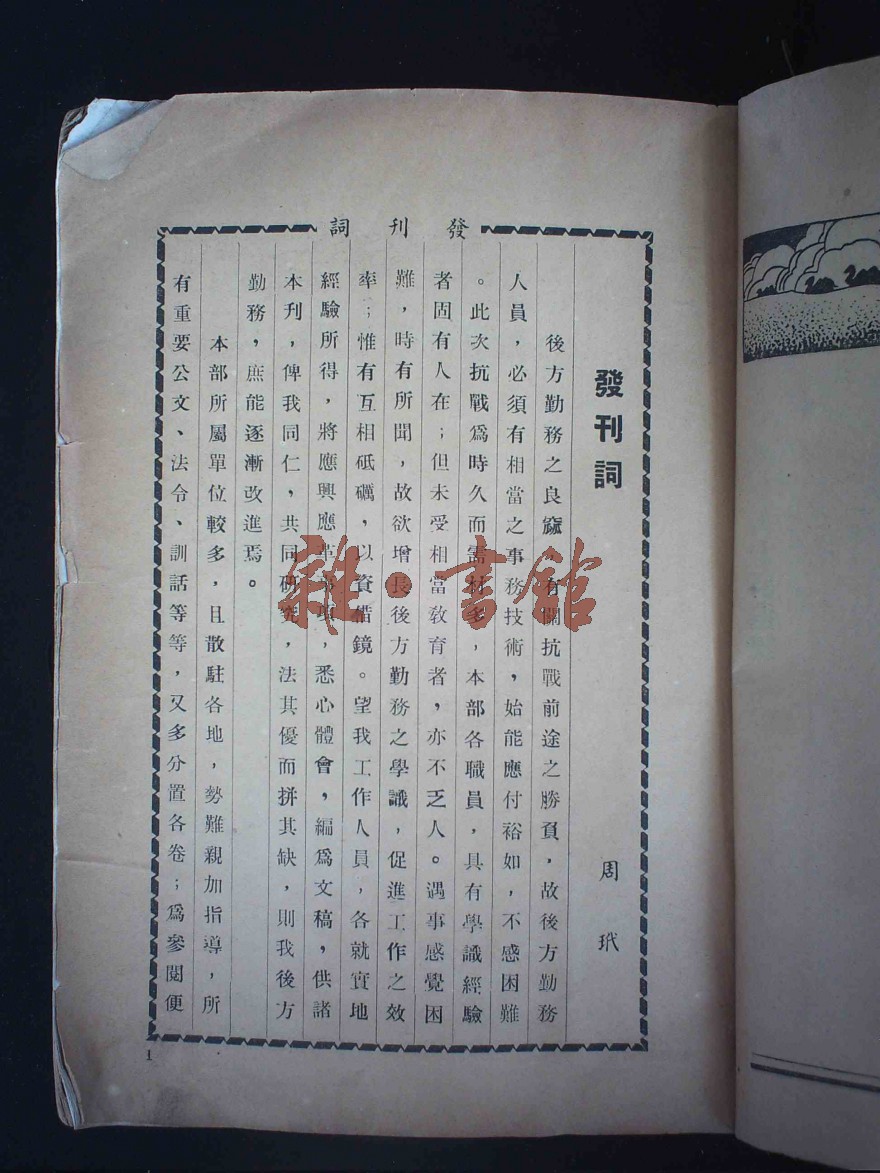 發刊詞
發刊詞
周玳
後方勤務之良窳，有關抗戰前途之勝負，故後方勤務
人員，必須有相當之事務技術，始能應付裕如，不感困難
。此次抗戰爲時久而需材多，本部各職員，具有學識經驗
者固有人在；但未受相當敎育者，亦不乏人。遇事感覺困
難，時有所聞，故欲增長後方勤務之學識，促進工作之效
率；惟有互相砥礪，以資借鏡。望我工作人員，各就實地
經驗所得，將應興應革事項，悉心體會，編爲文稿，供諸
本刋，俾我同仁，共同研究，法其優而拼其缺，則我後方
勤務，庶能逐漸改進焉。
本部所屬單位較多，且散駐各地，勢難親加指導，所
有重要公文、法令、訓話等等，又多分置各卷；爲參閱便
1
雜·書館